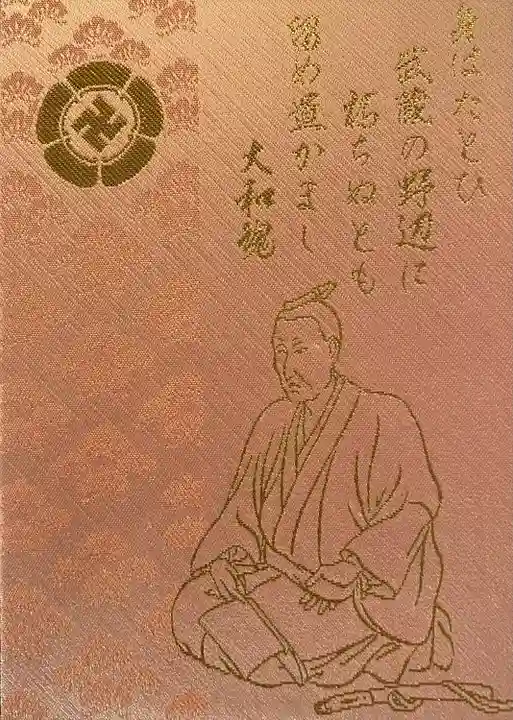 身はたとひ
武蔵の野邊に
朽ちぬとも
留め置かまし
大和魂